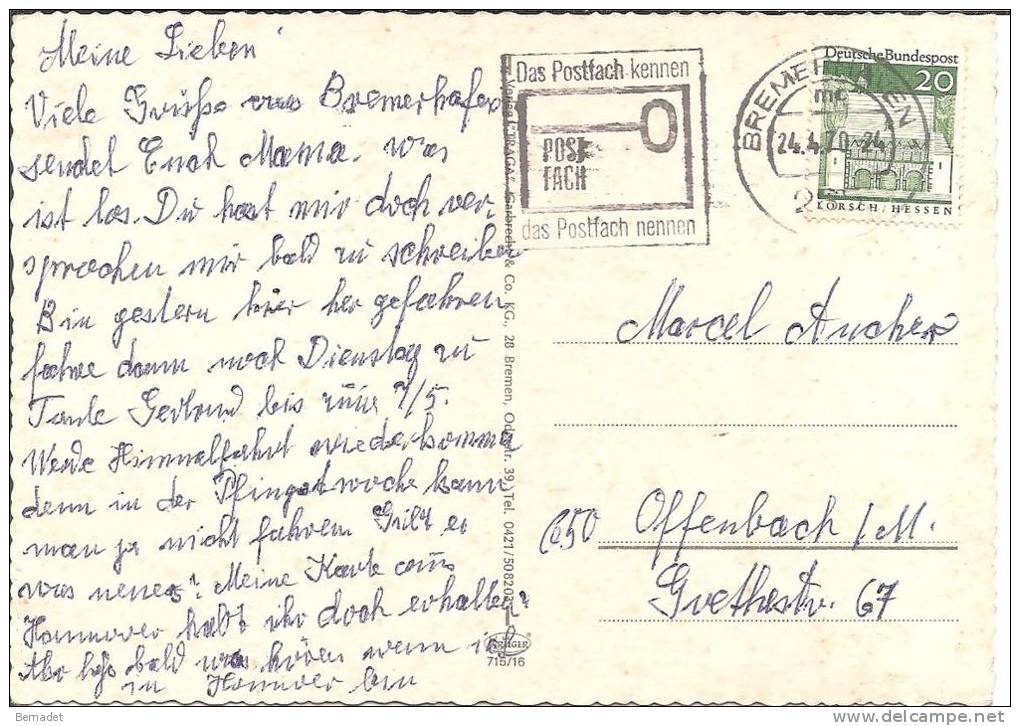 Meine Lieben!
Viele Grüße aus Bremerhafen
sendet Euch Mama. was
ist los. Du hast mir doch ver-
sprochen mir bald zu schreiben
Bin gestern hier her gefahren
fahre dann noch Dienstag zu
Tante Gertrud bis zum 7/5.
Werde Himmelfahrt wiederkommen
denn in der Pfingstwoche kann
man ja nicht fahren Gibt es
was neues? Meine Karte aus
Hannover habt ihr doch erhalten?
bald was hören wenn ich
in Hannover bin
Das Postfach kennen
POST
FACH
das Postfach nennen
BREMERHAVEN
mc
24.4.70-24
2
Deutsche Bundespost
20
LORSCH/HESSEN
Marcel Aucher
650 Offenbach/M.
Goethestr. 67
& Co. KG., 28 Bremen, Tel. 0421/508202
KRÜGER
715/16
Bernadet
delcampe.net